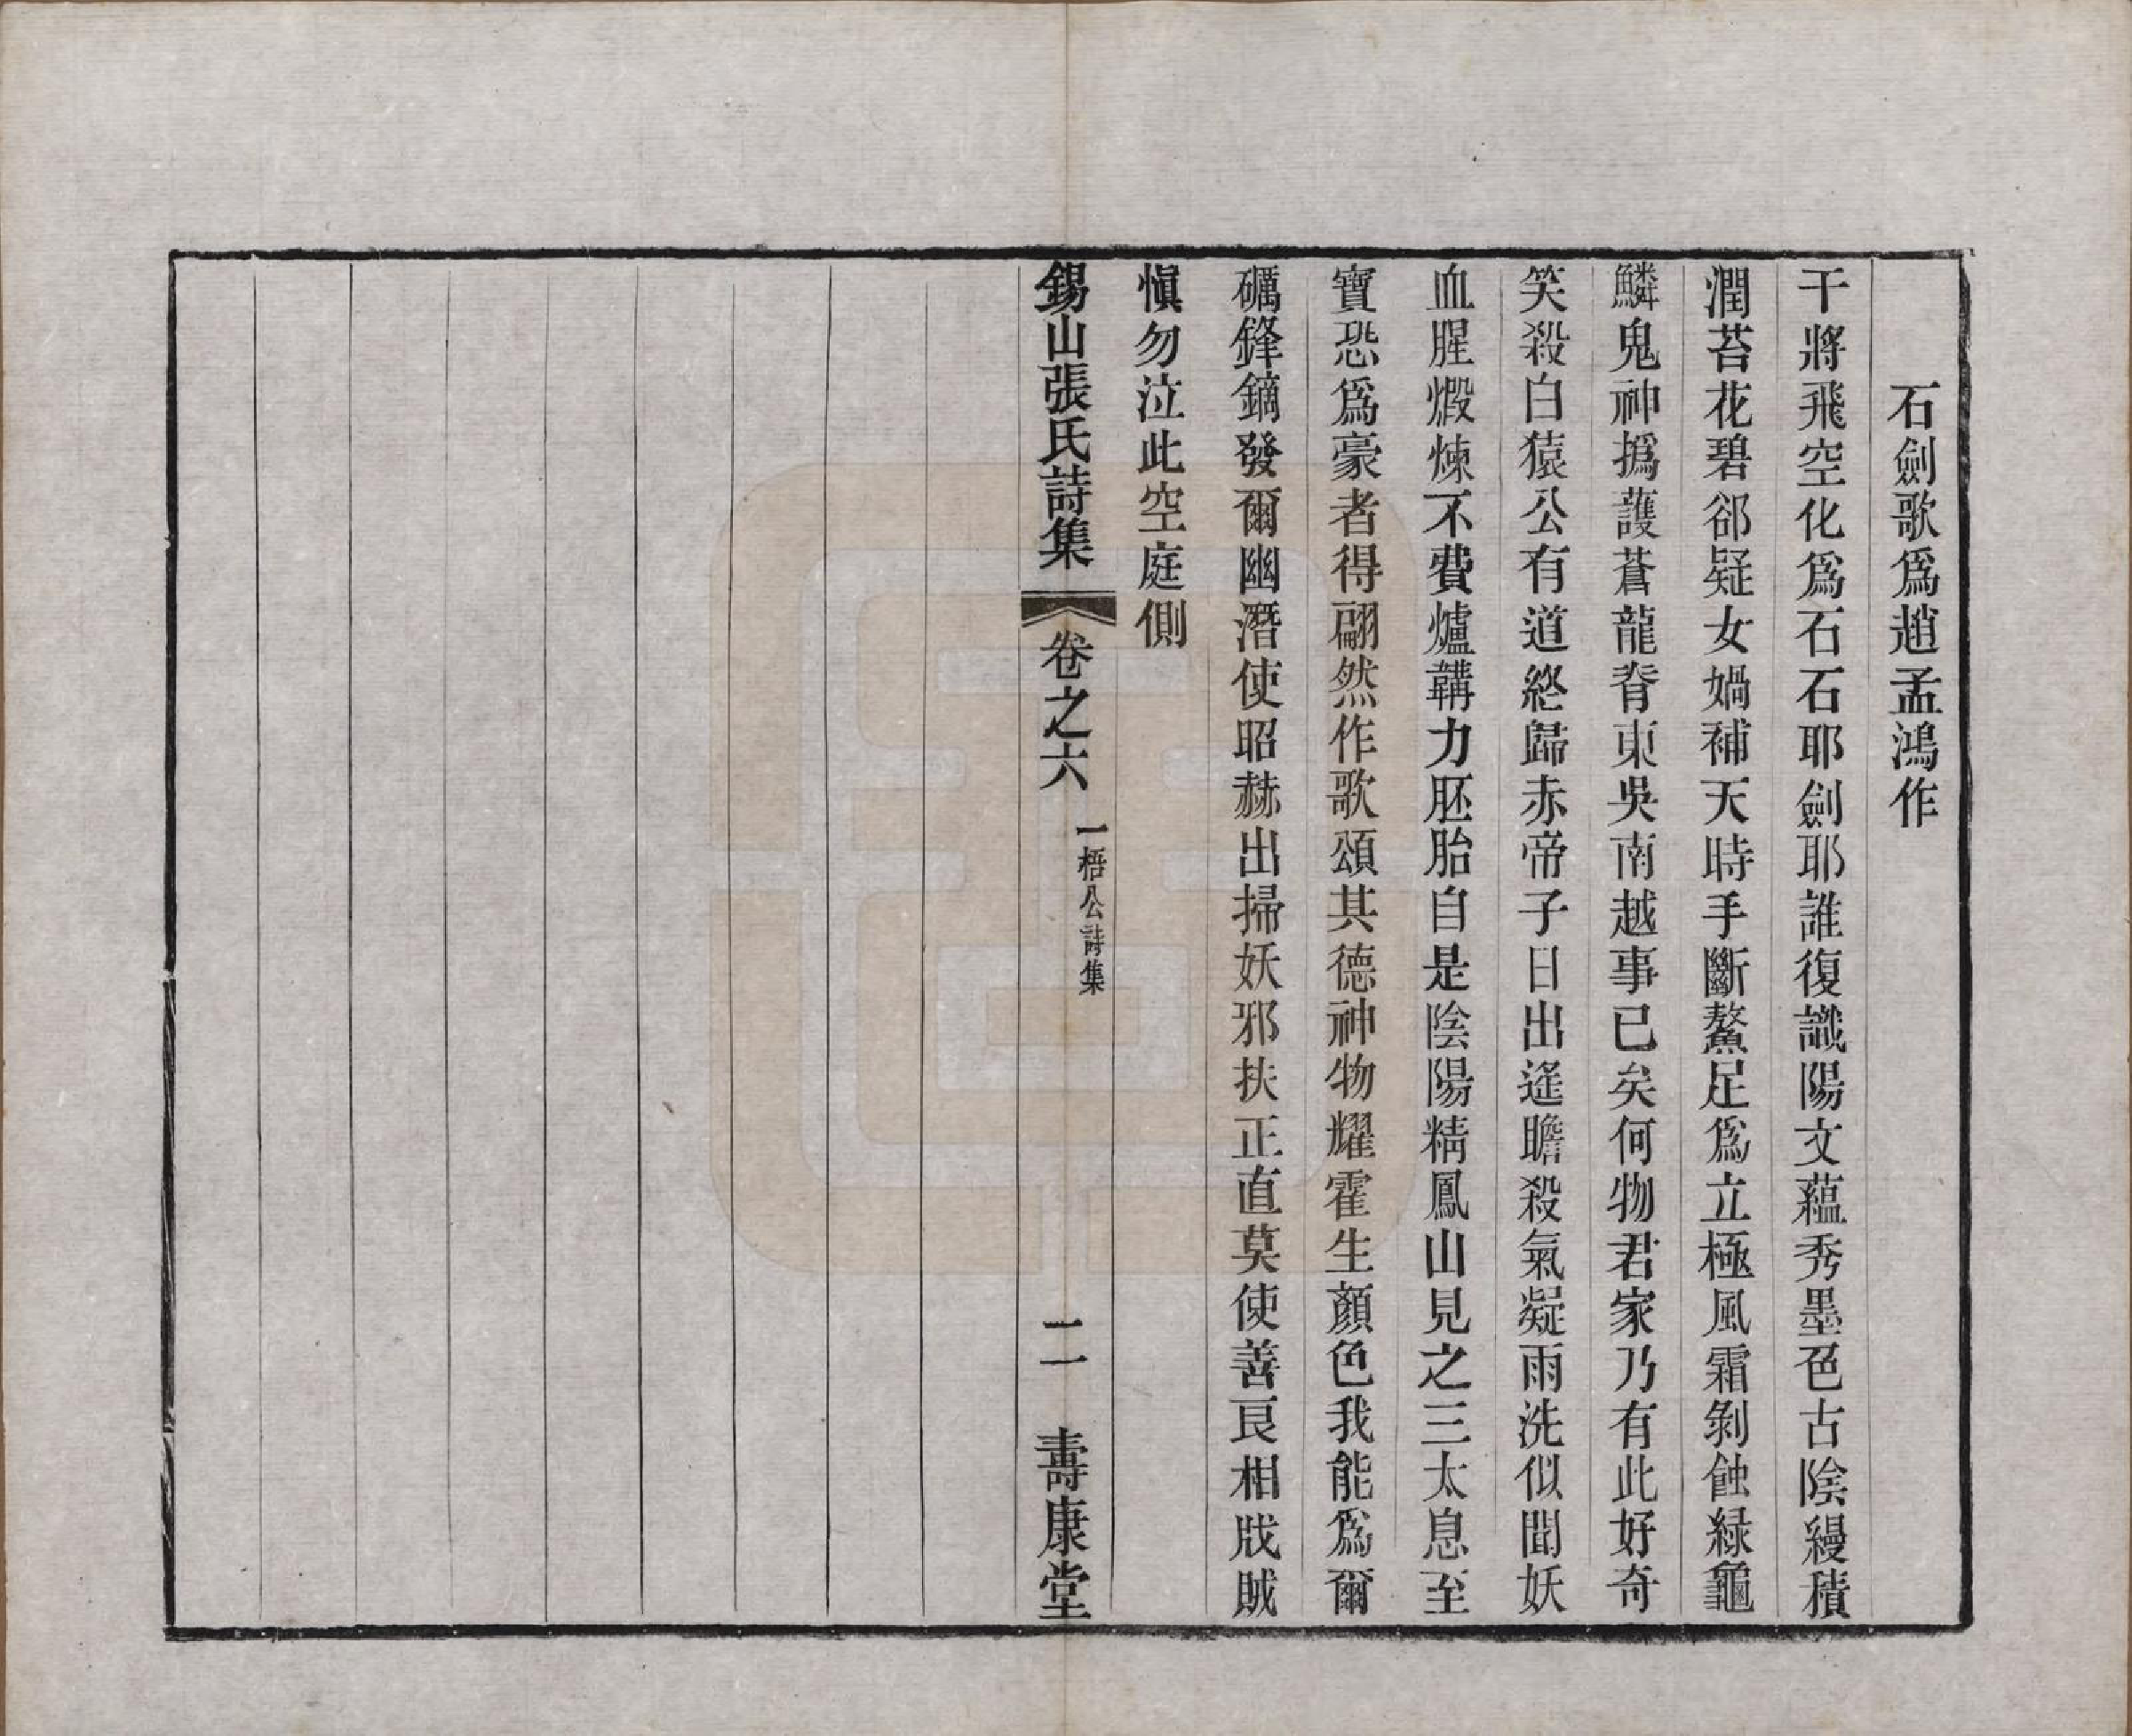 石劍歌爲趙孟鴻作
干將飛空化爲石石耶劍耶誰復識陽文蘊秀墨色古陰縵積
潤苔花碧郤疑女媧補天時手斷鰲足爲立極風霜剝蝕緑龜
鱗鬼神撝護蒼龍脊東吳南越事已矣何物君家乃有此好奇
笑殺白猿公有道終歸赤帝子日出遙瞻殺氣凝雨洗似聞妖
血腥煅煉不費爐韝力胚胎自是陰陽精鳳山見之三太息至
寶恐爲豪者得翩然作歌頌其德神物耀霍生顏色我能爲爾
礪鋒鏑發爾幽潛使昭赫出掃妖邪扶正直莫使善良相戕賊
愼勿泣此空庭側
錫山張氏詩集 卷之六 一梧公詩集 二 壽康堂